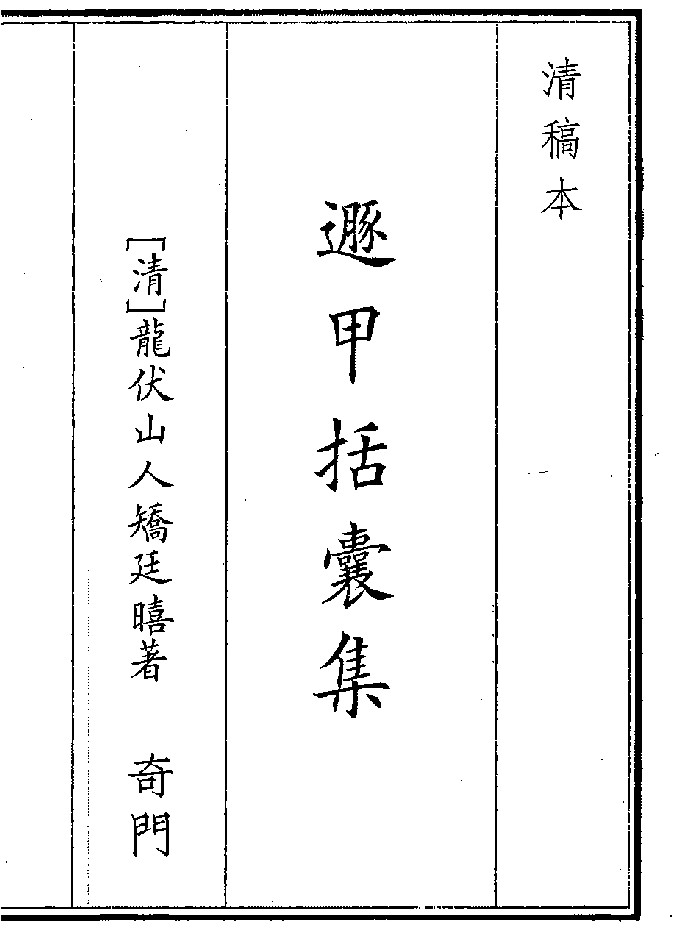 清稿本
遯甲括囊集
[清]龍伏山人矯廷暿著 奇門